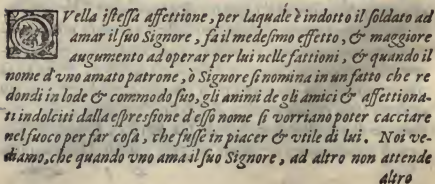 QVella istessa affettione, per laquale è indotto il soldato ad
amar il suo Signore, fa il medesmo effetto, & maggiore
augumento ad operar per lui nelle fattioni, & quando il
nome d'vno amato patrone, ò Signore si nomina in un fatto che re
dondi in lode & commodo suo, gli animi de gli amici & affettiona-
ti indolciti dalla espressione d'esso nome si vorriano poter cacciare
nel fuoco per far cosa, che fusse in piacer & vtile di lui. Noi ve-
diamo, che quando vno ama il suo Signore, ad altro non attende
altro